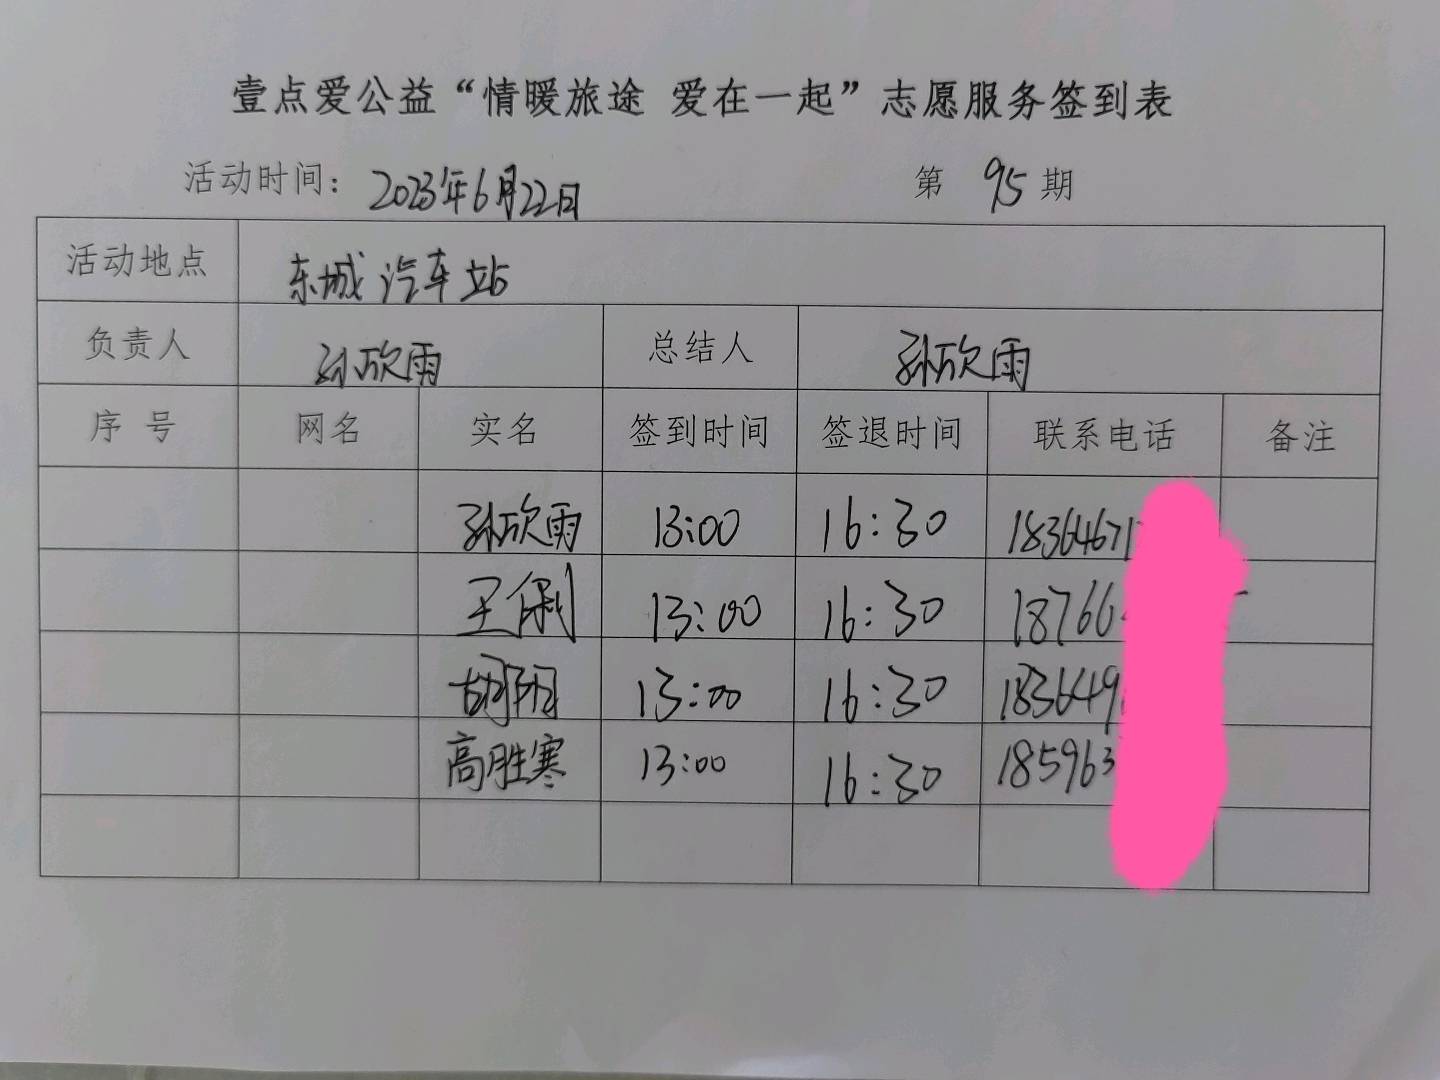 壹点爱公益“情暖旅途 爱在一起”志愿服务签到表
活动时间：2023年6月22日 第 95 期
活动地点 东城汽车站
负责人 孙欣雨 总结人 孙欣雨
序号 网名 实名 签到时间 签退时间 联系电话 备注
孙欣雨 13:00 16:30 1836467
王俐 13:00 16:30 18766
胡阳 13:00 16:30 183649
高胜寒 13:00 16:30 185963